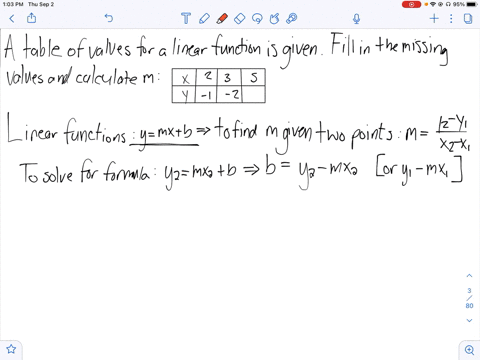 1:03 PM Thu Sep 2
95%
A table of values for a linear function is given. Fill in the missing
values and calculate m:
X 2 3 5
Y -1 -2
Linear functions: y=mx+b ⇒ to find m given two points: m = (y₂-y₁)/(x₂-x₁)
To solve for formula: y₂=mx₂+b ⇒ b = y₂-mx₂ [or y₁-mx₁]
3
/
80